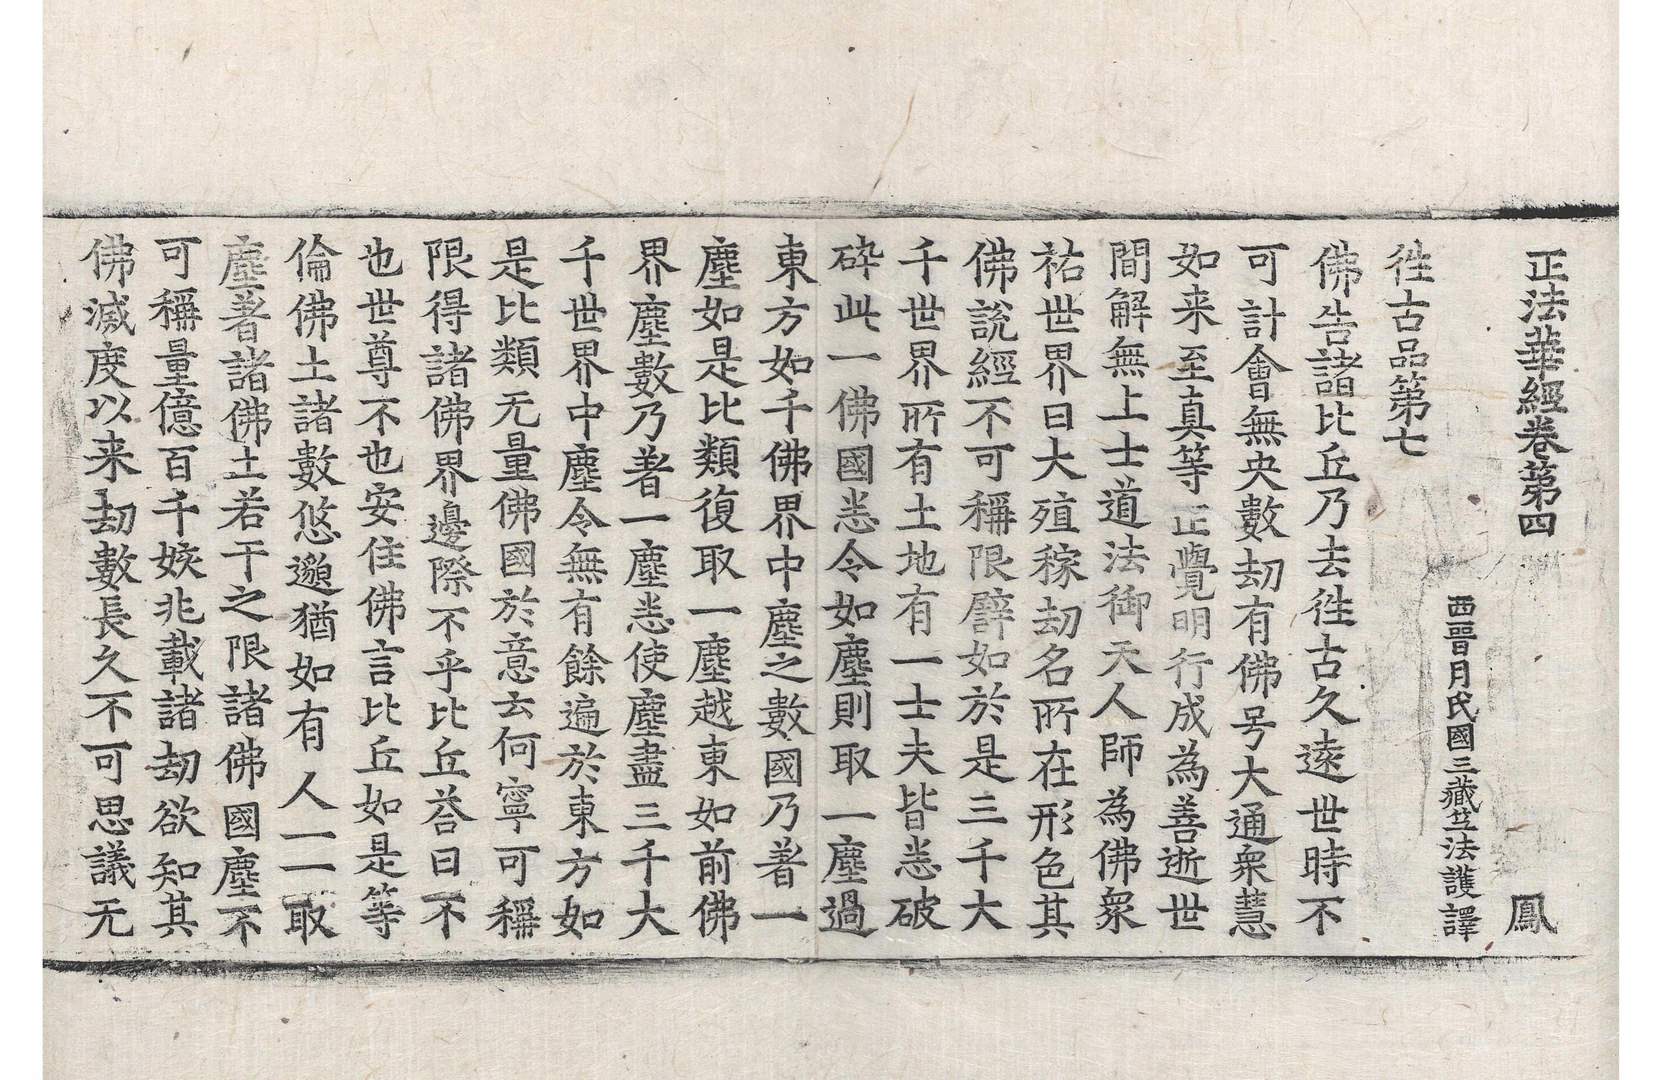 正法華經卷第四 鳳
西晋月氏國三藏竺法護譯
徃古品第七
佛告諸比丘乃去徃古久遠世時不
可計會無央數劫有佛号大通衆慧
如来至真等正覺明行成為善逝世
間解無上士道法御天人師為佛衆
祐世界曰大殖稼劫名所在形色其
佛說經不可稱限譬如於是三千大
千世界所有土地有一士夫皆悉破
碎此一佛國悉令如塵則取一塵過
東方如千佛界中塵之數國乃著一
塵如是比類復取一塵越東如前佛
界塵數乃著一塵悉使塵盡三千大
千世界中塵令無有餘遍於東方如
是比類无量佛國於意云何寧可稱
限得諸佛界邊際不乎比丘荅曰不
也世尊不也安住佛言比丘如是等
倫佛土諸數悠邈猶如有人一一取
塵著諸佛土若干之限諸佛國塵不
可稱量億百千姟兆載諸劫欲知其
佛滅度以来劫數長久不可思議无